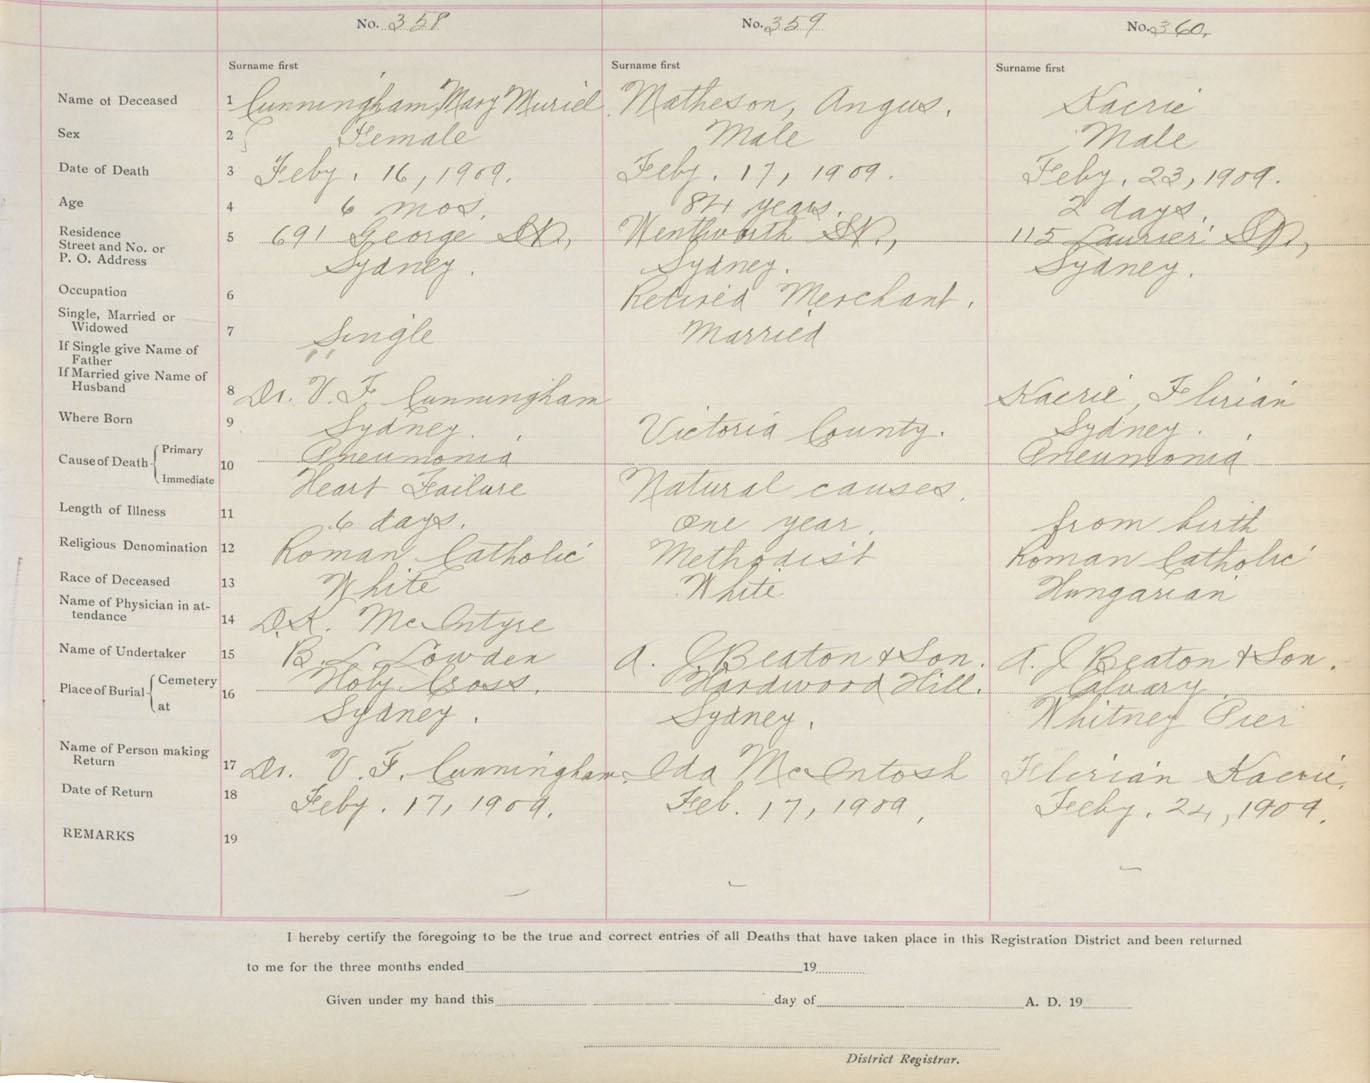 No. 358 No. 359 No. 360.
Surname first Surname first Surname first
Name of Deceased 1 Cunningham, Mary Muriel Matheson, Angus. Kacrie
Sex 2 Female Male Male
Date of Death 3 Feby. 16, 1909. Feby. 17, 1909. Feby. 23, 1909.
Age 4 6 mos. 84 years. 2 days.
Residence
Street and No. or 5 691 George St., Wentworth St., 115 Laurier St.,
P. O. Address Sydney. Sydney. Sydney.
Occupation 6 Retired Merchant.
Single, Married or
Widowed 7 Single Married
If Single give Name of
Father "
If Married give Name of
Husband 8 Dr. V. F. Cunningham Kacrie, Florian
Where Born 9 Sydney. Victoria County. Sydney.
Cause of Death Primary 10 Pneumonia Pneumonia
Immediate Heart Failure Natural causes.
Length of Illness 11 6 days. one year. from birth
Religious Denomination 12 Roman Catholic Methodist Roman Catholic
Race of Deceased 13 White White Hungarian
Name of Physician in at-
tendance 14 D. K. McIntyre
Name of Undertaker 15 B. L. Lowden A. J. Beaton & Son. A. J. Beaton & Son.
Place of Burial Cemetery 16 Holy Cross. Hardwood Hill. Calvary.
at Sydney. Sydney. Whitney Pier
Name of Person making
Return 17 Dr. V. F. Cunningham. Ida McIntosh Florian Kacrie.
Date of Return 18 Feby. 17, 1909. Feb. 17, 1909. Feby. 24, 1909.
REMARKS 19
I hereby certify the foregoing to be the true and correct entries of all Deaths that have taken place in this Registration District and been returned
to me for the three months ended 19
Given under my hand this day of A. D. 19
District Registrar.